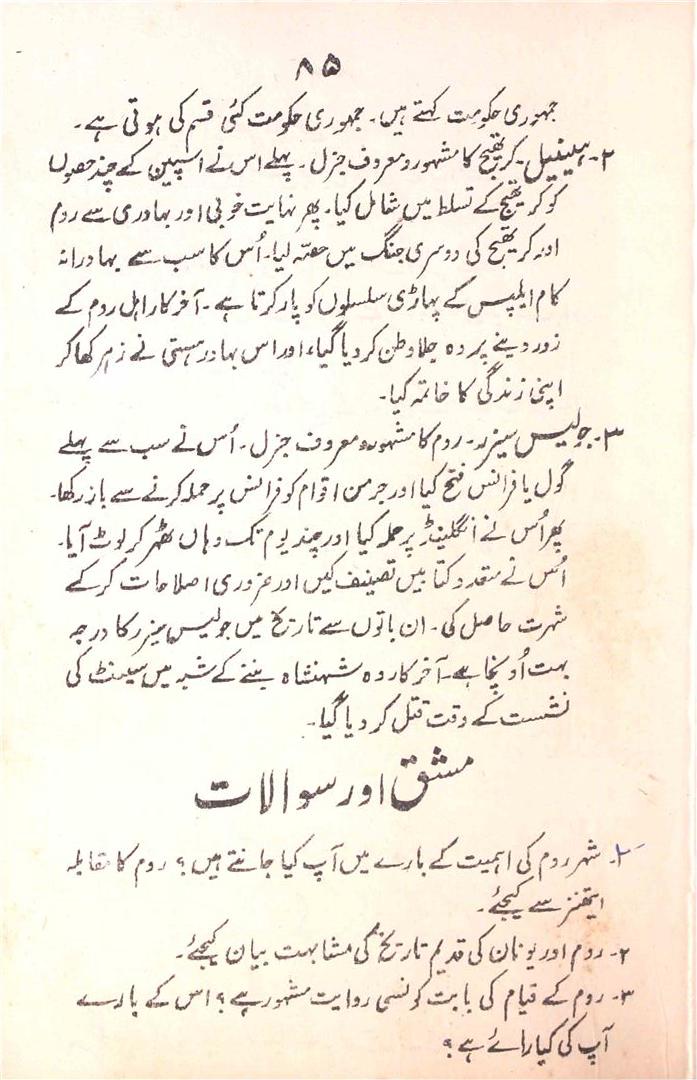 ۸۵
جمہوری حکومت کہتے ہیں۔ جمہوری حکومت کئی قسم کی ہوتی ہے۔
۲۔ ہینیبل۔ کریتھیج کا مشہور و معروف جنرل۔ پہلے اس نے اسپین کے چند حصوں
کو کریتھیج کے تسلط میں شامل کیا۔ پھر نہایت خوبی اور بہادری سے روم
اور کریتھیج کی دوسری جنگ میں حصہ لیا۔ اُس کا سب سے بہادرانہ
کام ایلپس کے پہاڑی سلسلوں کو پار کرتا ہے۔ آخر کار اہل روم کے
زور دینے پر وہ جلا وطن کر دیا گیا، اور اس بہادر ہستی نے زہر کھا کر
اپنی زندگی کا خاتمہ کیا۔
۳۔ جولیس سیزر۔ روم کا مشہور و معروف جنرل۔ اُس نے سب سے پہلے
گول یا فرانس فتح کیا اور جرمن اقوام کو فرانس پر حملہ کرنے سے باز رکھا۔
پھر اُس نے انگلینڈ پر حملہ کیا اور چند یوم تک وہاں ٹھہر کر لوٹ آیا۔
اُس نے متعدد کتابیں تصنیف کیں اور ضروری اصلاحات کر کے
شہرت حاصل کی۔ ان باتوں سے تاریخ میں جولیس سیزر کا درجہ
بہت اُونچا ہے۔ آخر کار وہ شہنشاہ بننے کے شبہ میں سیینٹ کی
نشست کے وقت قتل کر دیا گیا۔
مشق اور سوالات
۱۔ شہر روم کی اہمیت کے بارے میں آپ کیا جانتے ہیں؟ روم کا مقابلہ
ایتھنز سے کیجئے۔
۲۔ روم اور یونان کی قدیم تاریخ کی مشابہت بیان کیجئے۔
۳۔ روم کے قیام کی بابت کونسی روایت مشہور ہے؟ اس کے بارے
آپ کی کیا رائے ہے؟